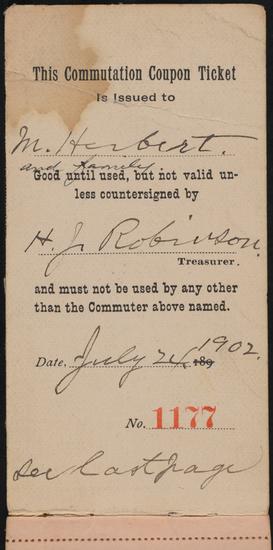 This Commutation Coupon Ticket
Is Issued to
M. Herbert.
and family.
Good until used, but not valid un-
less countersigned by
H. J. Robinson.
Treasurer.
and must not be used by any other
than the Commuter above named.
Date, July 24, 189 1902.
No. 1177
see last page